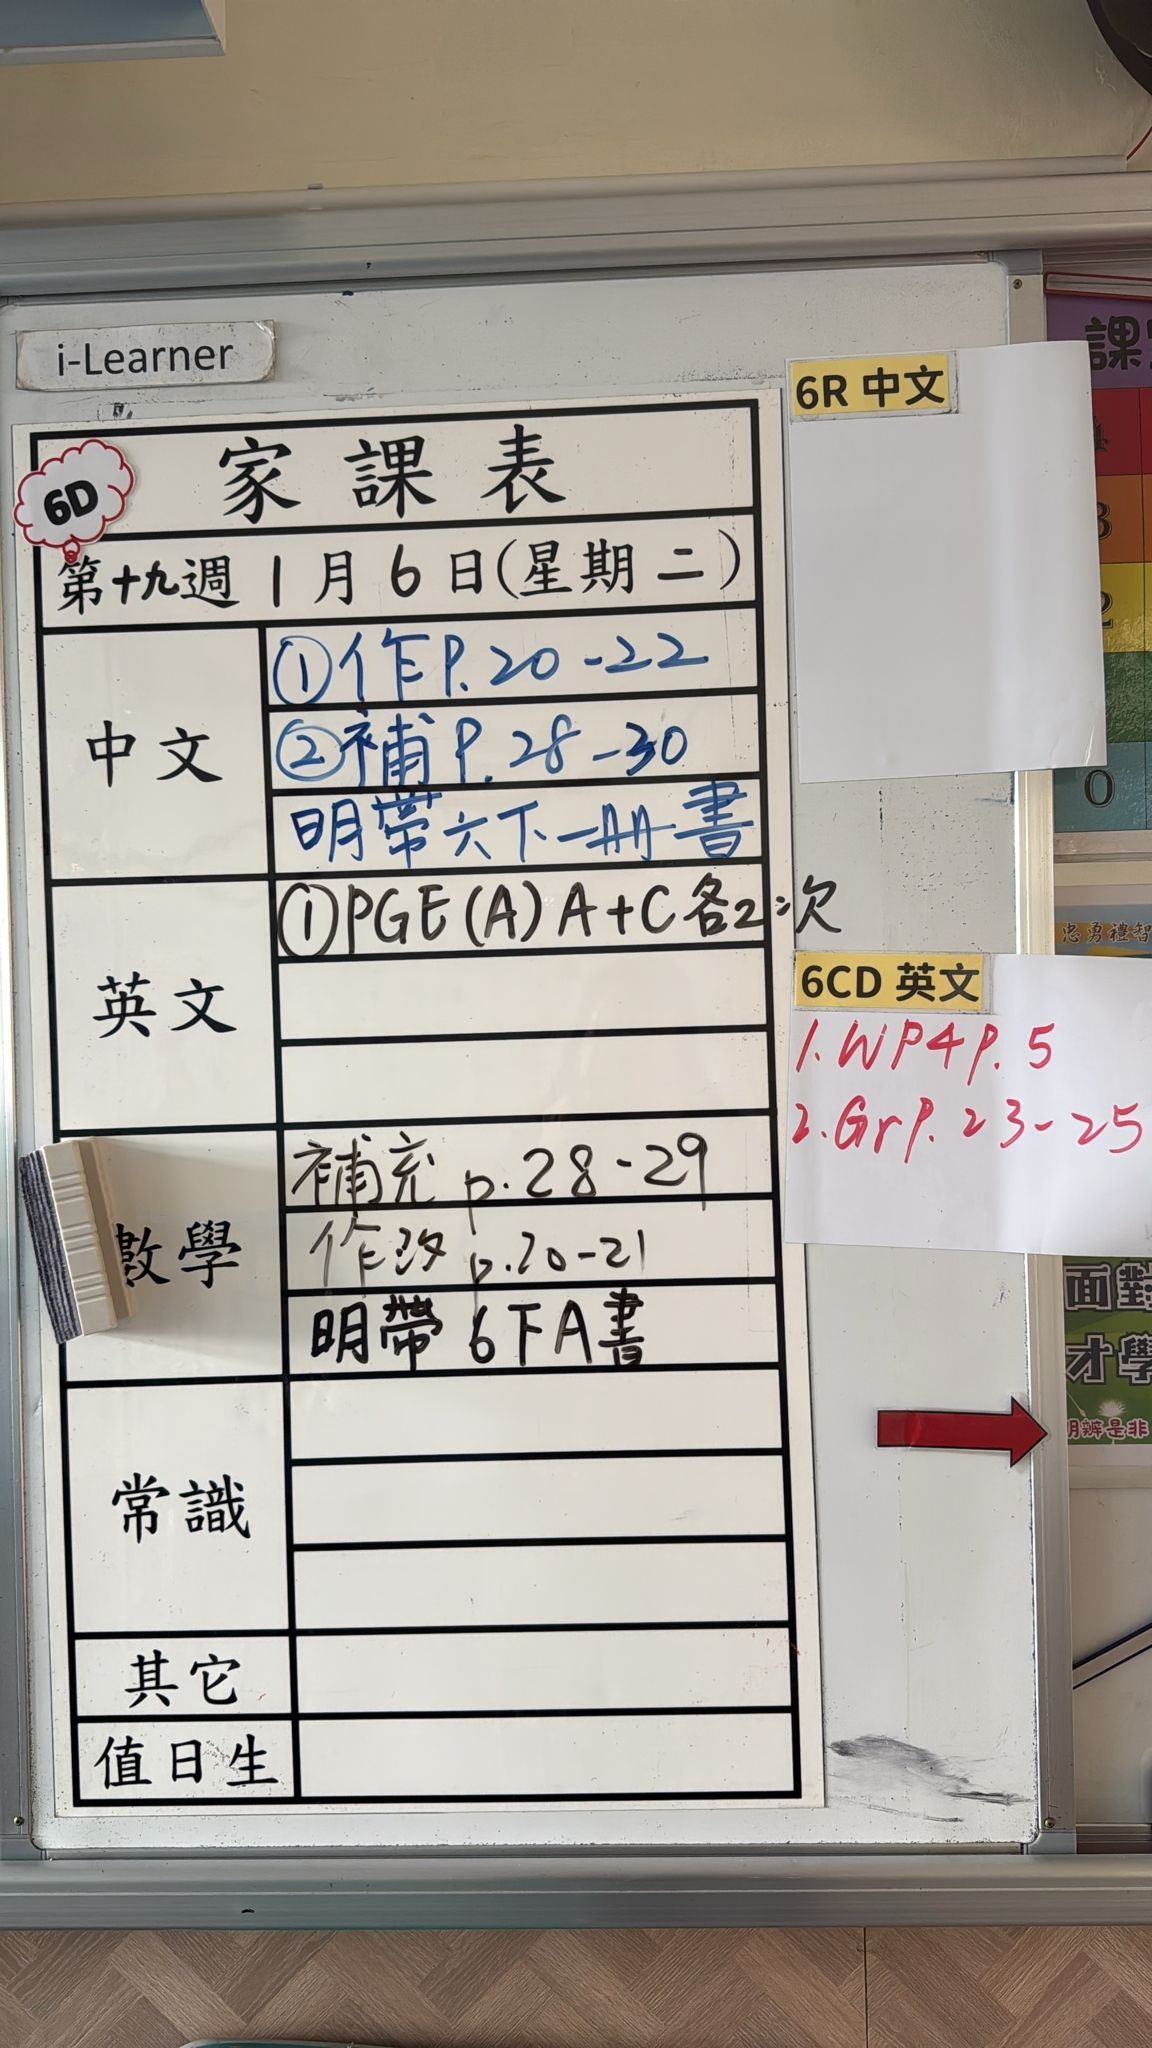 i-Learner
6D
家課表
第十九週 1月6日(星期二)
中文
①作P.20-22
②補P.28-30
明帶六下一冊書
英文
①PGE(A)A+C各2次
數學
補充 p.28-29
作改 p.20-21
明帶6下A書
常識
其它
值日生
6R 中文
6CD 英文
1.WP4P.5
2.GrP.23-25
課
3
2
0
忠勇禮智
面對
才學
明辨是非